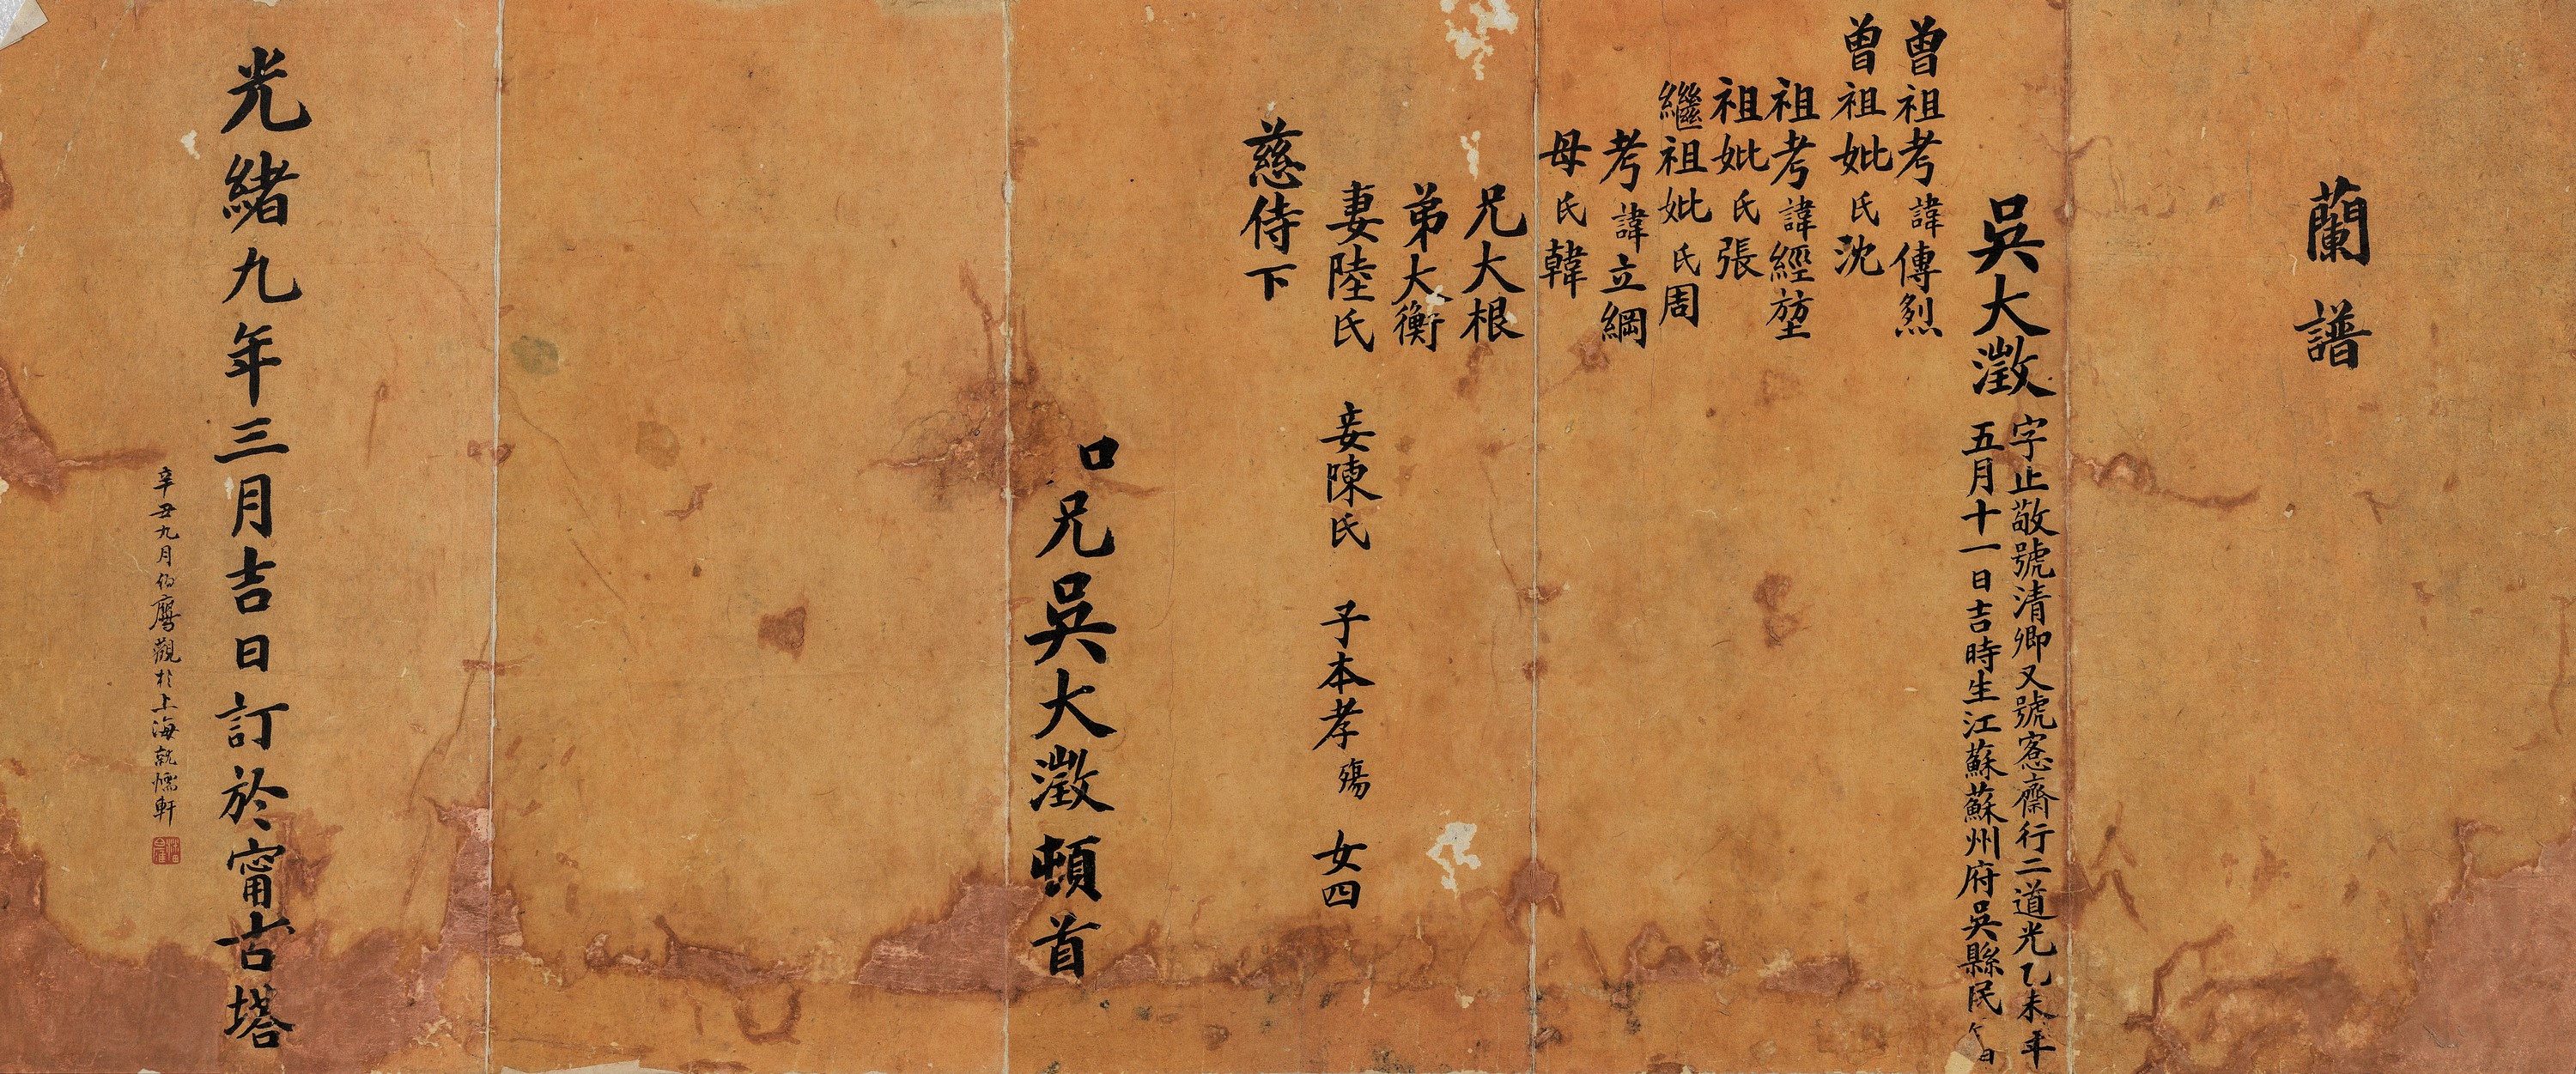 蘭譜
吳大澂
字止敬號清卿又號愙齋行二道光乙未年
五月十一日吉時生江蘇蘇州府吳縣民
曾祖考諱傳烈
曾祖妣氏沈
祖考諱經堃
祖妣氏張
繼祖妣氏周
考諱立綱
母氏韓
兄大根
弟大衡
妻陸氏 妾陳氏 子本孝殤 女四
慈侍下
口兄吳大澂頓首
光緒九年三月吉日訂於甯古塔
辛丑九月伯鷹觀於上海就懦軒